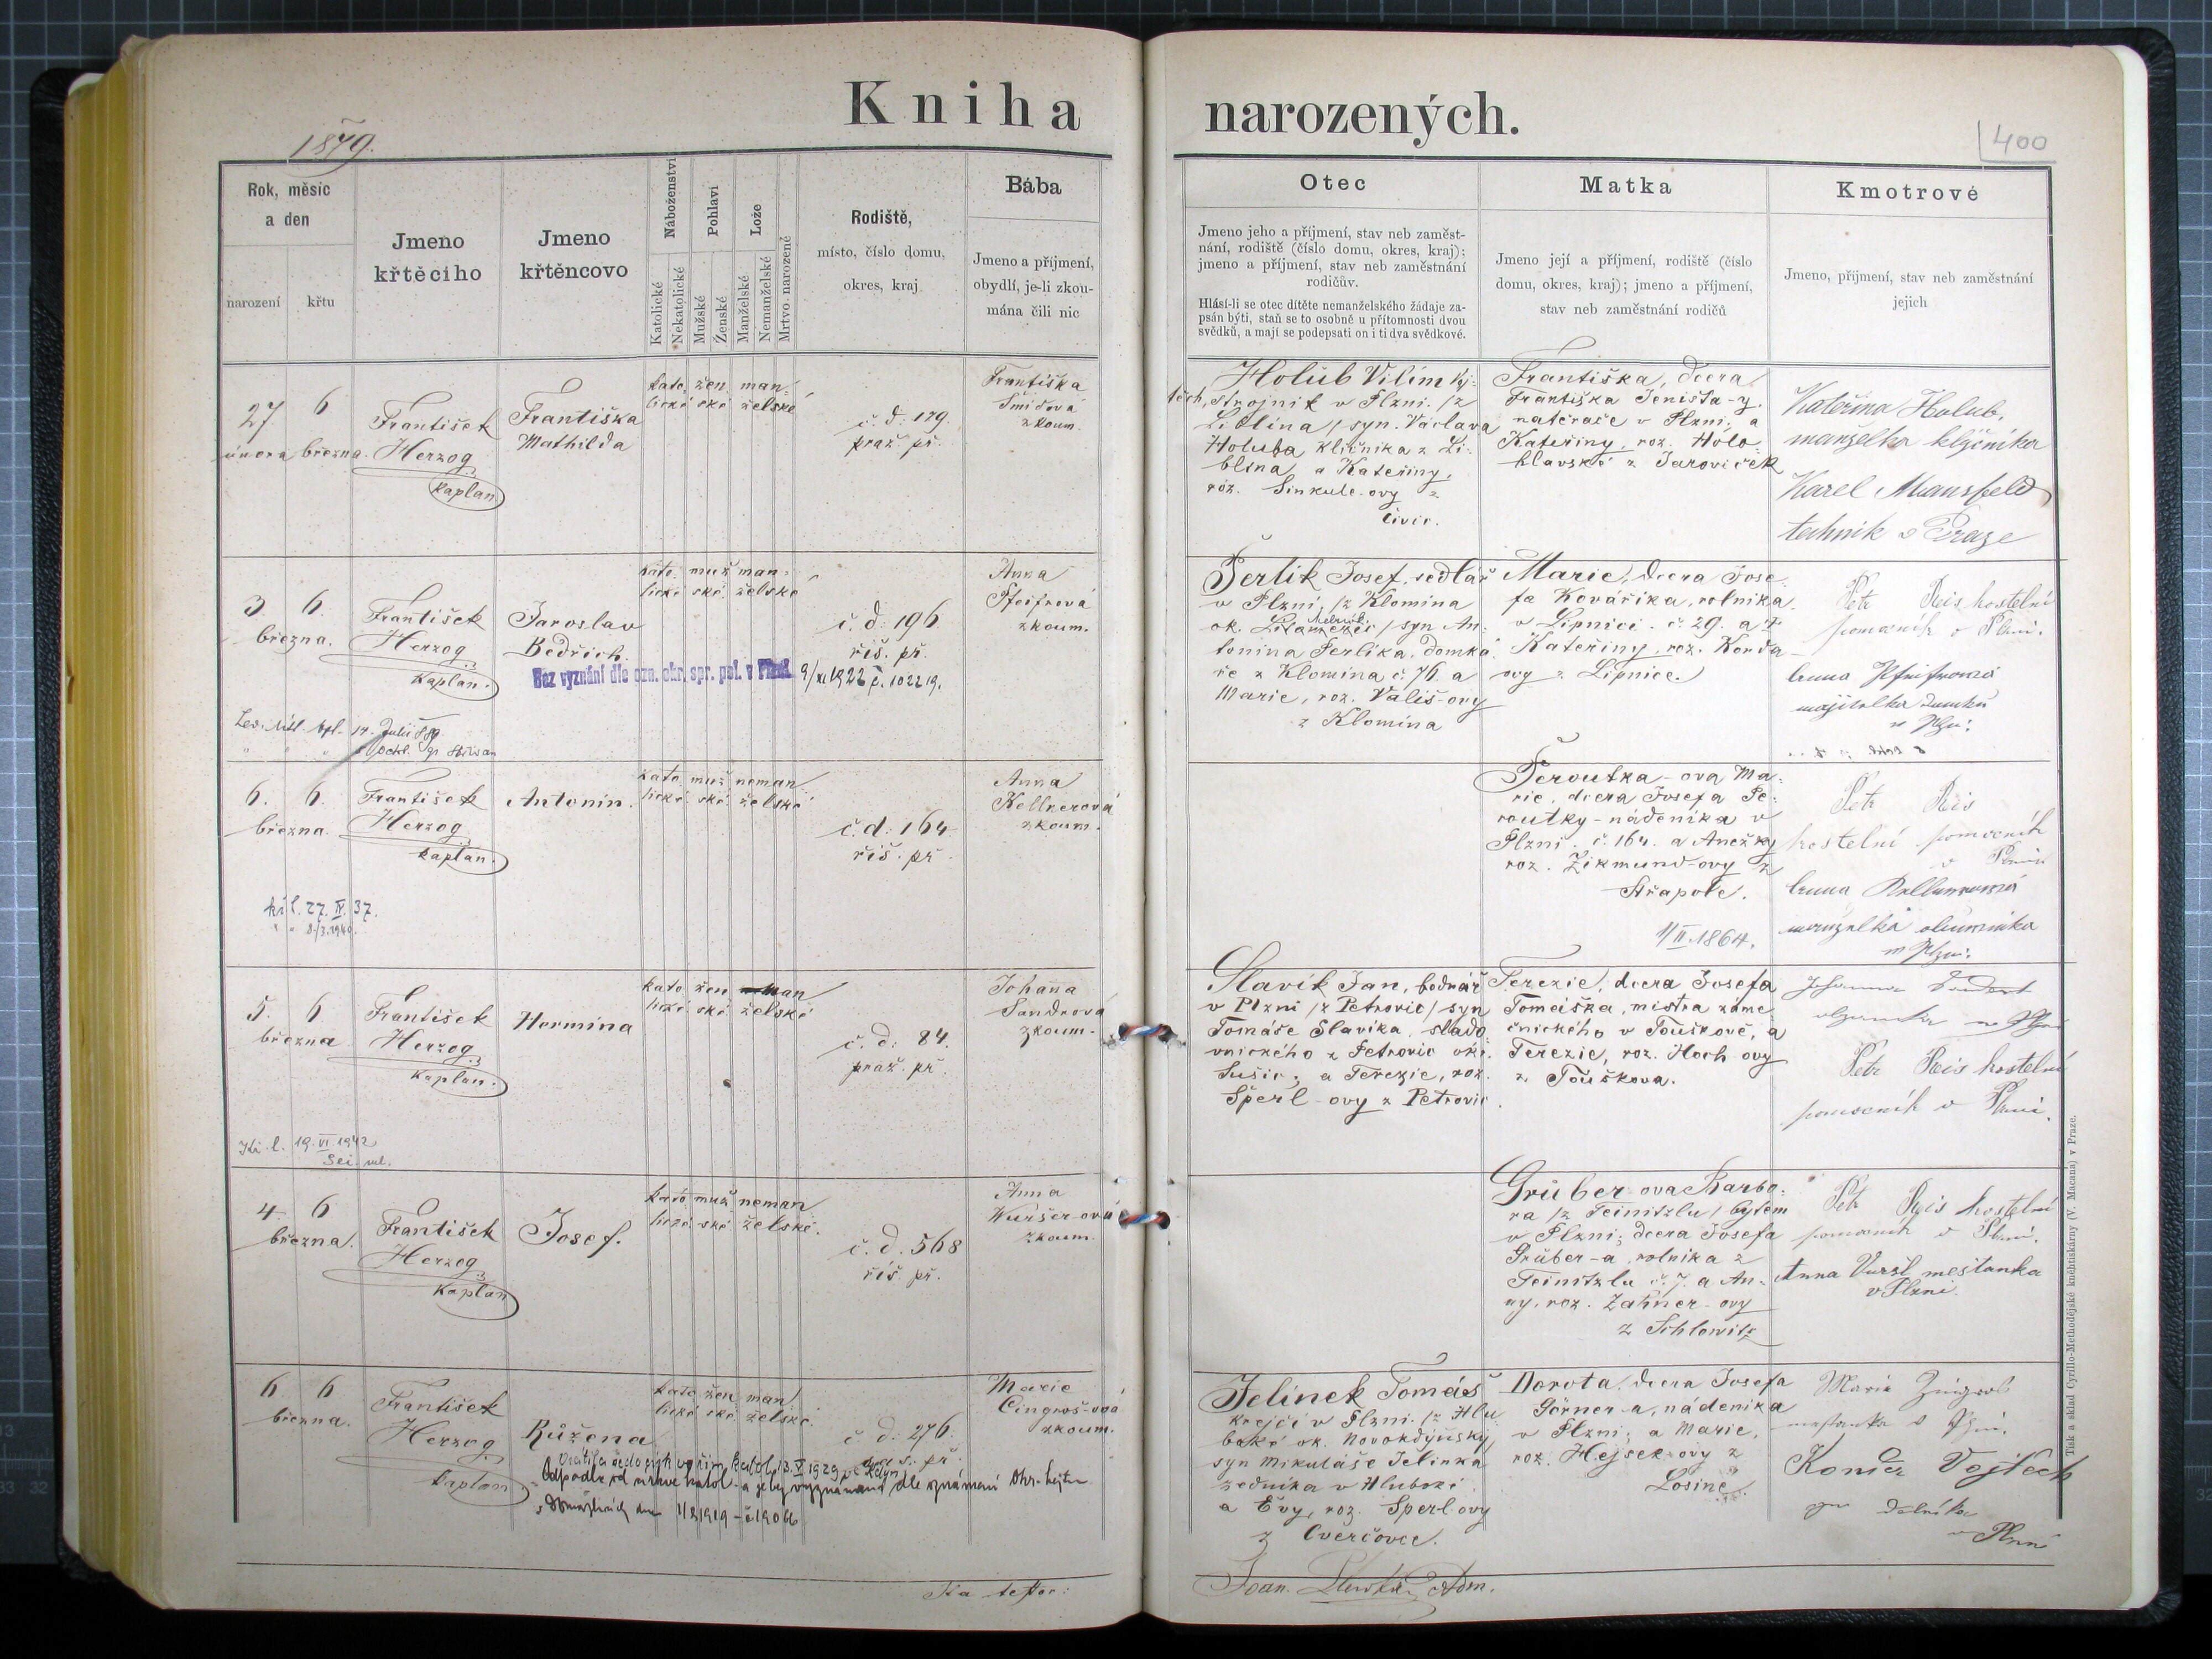 Kniha narozených.
1879.
400
Rok, měsíc
a den
narození
křtu
Jmeno
křtěcího
Jmeno
křtěncovo
Náboženství
Katolické
Nekatolické
Pohlaví
Mužské
Ženské
Lože
Manželské
Nemanželské
Mrtvo narozené
Rodiště,
místo, číslo domu,
okres, kraj
Bába
Jmeno a příjmení,
obydlí, je-li zkou-
mána čili nic
Otec
Jmeno jeho a příjmení, stav neb zaměst-
nání, rodiště (číslo domu, okres, kraj);
jmeno a příjmení, stav neb zaměstnání
rodičův.
Hlásí-li se otec dítěte nemanželského žádaje za-
psán býti, staň se to osobně u přítomnosti dvou
svědků, a mají se podepsati on i ti dva svědkové.
Matka
Jmeno její a příjmení, rodiště (číslo
domu, okres, kraj); jmeno a příjmení,
stav neb zaměstnání rodičů
Kmotrové
Jmeno, příjmení, stav neb zaměstnání
jejich
27 února
6 března.
František
Herzog
kaplan
Františka
Mathilda
kato- žen man-
lické ské želské
č. d. 179.
praž. př.
Františka
Šmídová
zkoum.
Holub Vilím
strojník v Plzni. /z
Liblína/, syn Václava
Holuba klíčníka z Li-
blína a Kateřiny,
roz. Sinkule-ovy z
Františka, dcera
Františka
natěrače v Plzni, a
Kateřiny, roz. Holo-
hlavské z Jaroviček
Kateřina Holub,
manželka klíčníka
Karel Mansfeld
technik v Praze
3. 6.
března.
František
Herzog
Kaplan.
Jaroslav
Bedřich.
kato- muž man-
lické ské želské
č. d. 196
říš. př.
Anna
Pfeifrová
zkoum.
Bez vyznání dle ozn. okr. spr. pol. v Plzni 9/XI 1922 č. 102219.
Perlík Josef, sedlář
v Plzni, /z Klomina
ok. /syn An-
tonína Perlíka, domká-
ře z Klomina č. 76 a
Marie, roz. Vališ-ovy
z Klomina
Marie, dcera Jose-
fa Kováříka, rolníka
v Lipnici č. 29. a
Kateřiny, roz. Korda-
ovy z Lipnice.
Petr Reis kostelní
pomocník v Plzni.
Anna Pfeifrová
majitelka domku
v Plzni.
6. 6.
března.
František
Herzog
kaplan.
Antonín.
kato- muž neman-
lické ské želské
č. d. 164
říš. př.
Anna
Kellnerová
zkoum.
kř. l. 27. IV. 37.
" " 8./3. 1940.
Peroutka-ova Ma-
rie, dcera Josefa Pe-
routky - nádeníka v
Plzni č. 164. a Anežky
roz. Zikmund-ovy z
Střapole.
1/II. 1864.
Petr Reis
kostelní pomocník
v Plzni
Anna Kellnerová
manželka
v Plzni.
5. 6.
března
František
Herzog
Kaplan.
Hermina
kato- žen man-
lické ské želské
č. d. 84.
praž. př.
Johanna
Sandrová
zkoum.
Kř. l. 19. VI. 1942
Slavík Jan, bednář
v Plzni /z Petrovic/ syn
Tomáše Slavíka, slado-
vnického z Petrovic okr.
Sušic; a Terezie, roz.
Šperl-ovy z Petrovic.
Terezie, dcera Josefa
Tomáška, mistra záme-
čnického v Touškově, a
Terezie, roz. Hoch-ovy
z Touškova.
Petr Reis kostelní
pomocník v Plzni.
4 6
března.
František
Herzog
Kaplan
Josef.
kato- muž neman-
lické ské želské.
č. d. 568
říš. př.
Anna
Wuršer-ová
zkoum.
Grüber-ova Barbo-
ra /z Teinitzlu/ bytem
v Plzni; dcera Josefa
Grüber-a, rolníka z
Teinitzlu č. 7. a An-
ny, roz. Zahner-ovy
z Schlowitz
Petr Reis kostelní
pomocník v Plzni.
Anna Vuršl měštanka
v Plzni.
6 6
března.
František
Herzog
kaplan
Růžena
kato- žen man-
lické ské želské.
č. d. 276.
Marie
Cingroš-ová
zkoum.
Odpadla od církve katol. a je bez vyznání dle oznámení Okr. hejtm.
1/2 1919 - č. 19066
Jelínek Tomáš
krejčí v Plzni. /z Hlu-
boké ok. Novokdyňský,
syn Mikuláše Jelínka
zedníka v Hluboké
a Evy, roz. Šperl-ovy
z Cverčovce.
Dorota, dcera Josefa
Görner-a, nádeníka
v Plzni; a Marie,
roz. Hejsek-ovy z
Losiné.
Marie
měštanka v Plzni.
Vojtěch
v Plzni
Tisk a sklad Cyrillo-Methodějské knihtiskárny (V. Macana) v Praze.